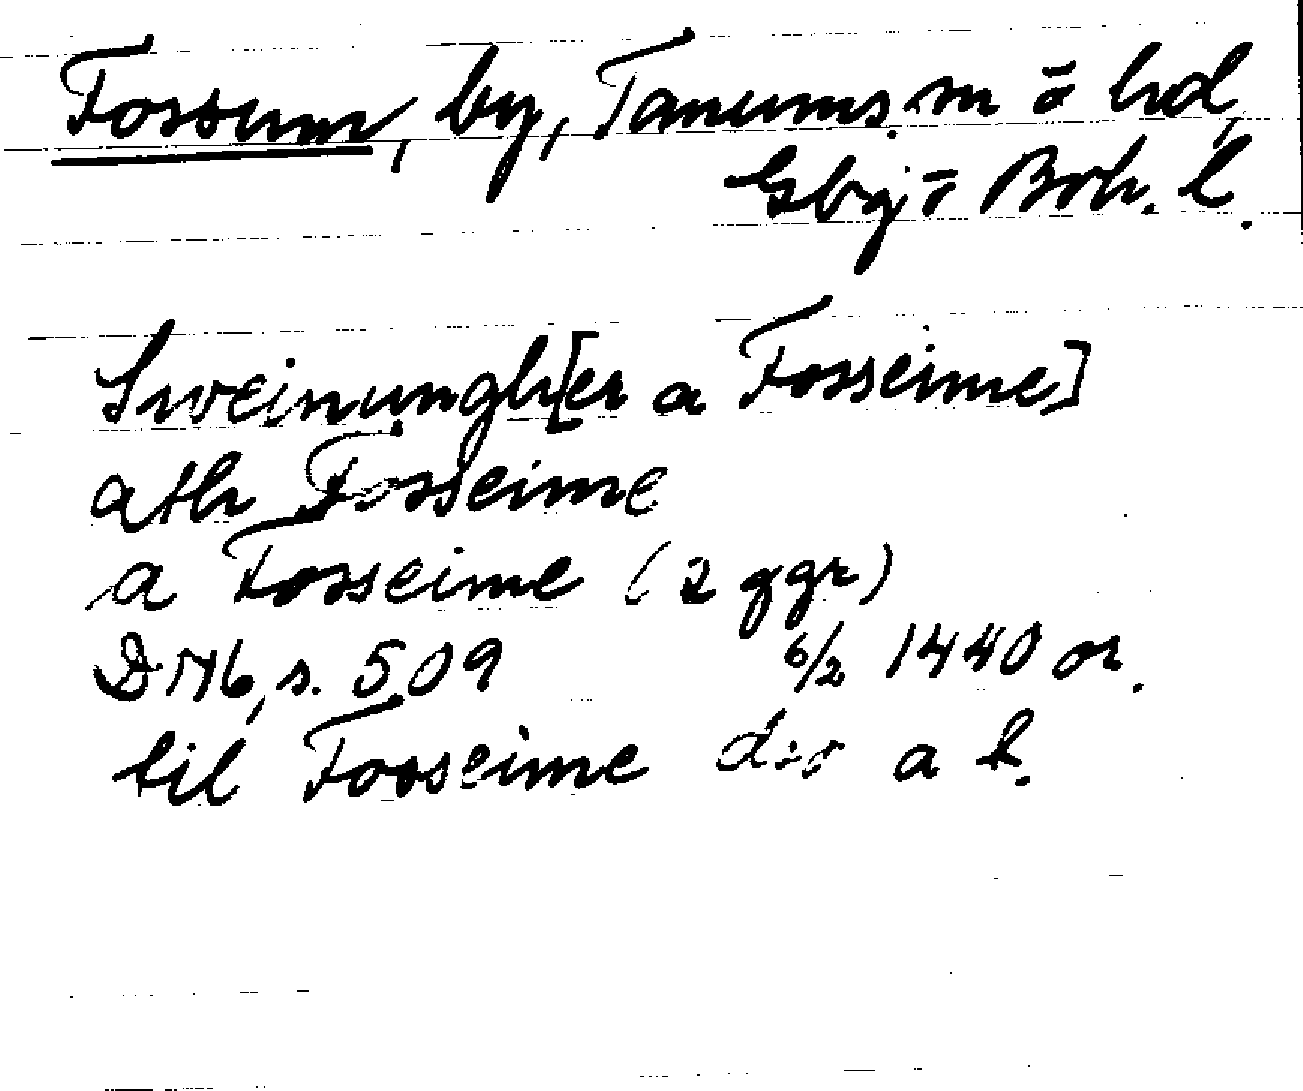 Fossum, by, Tanums sn o hd,
Gbg o Boh. l.
Sweinungh[er a Fosseime]
ath Fosseime
a Fosseime (2 ggr)
DN 16, s. 509 6/2 1440 or.
til Fosseime d:o a b.